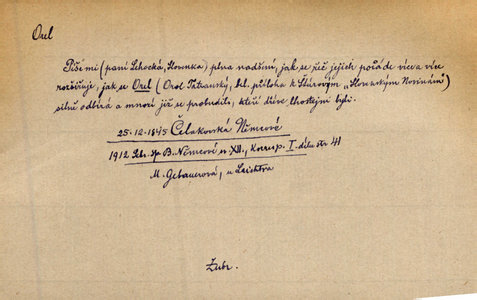 Orel
Píše mi (paní Lehocká, Slovenka) plna nadšení, jak se řeč jejich pořáde více a více
rozšiřuje, jak se Orel (Orol Tatranský, bel. příloha k Štúrovým „Slovenským Novinám")
silně odbírá a mnozí již se probudili, kteří dříve lhostejni byli.
25.-12.-1845 Čelakovská Němcové
1912 Seb. sp. B. Němcové sv. XII., Korresp. I. dílu str 41
M. Gebauerová, u Laichtra
Zubr.